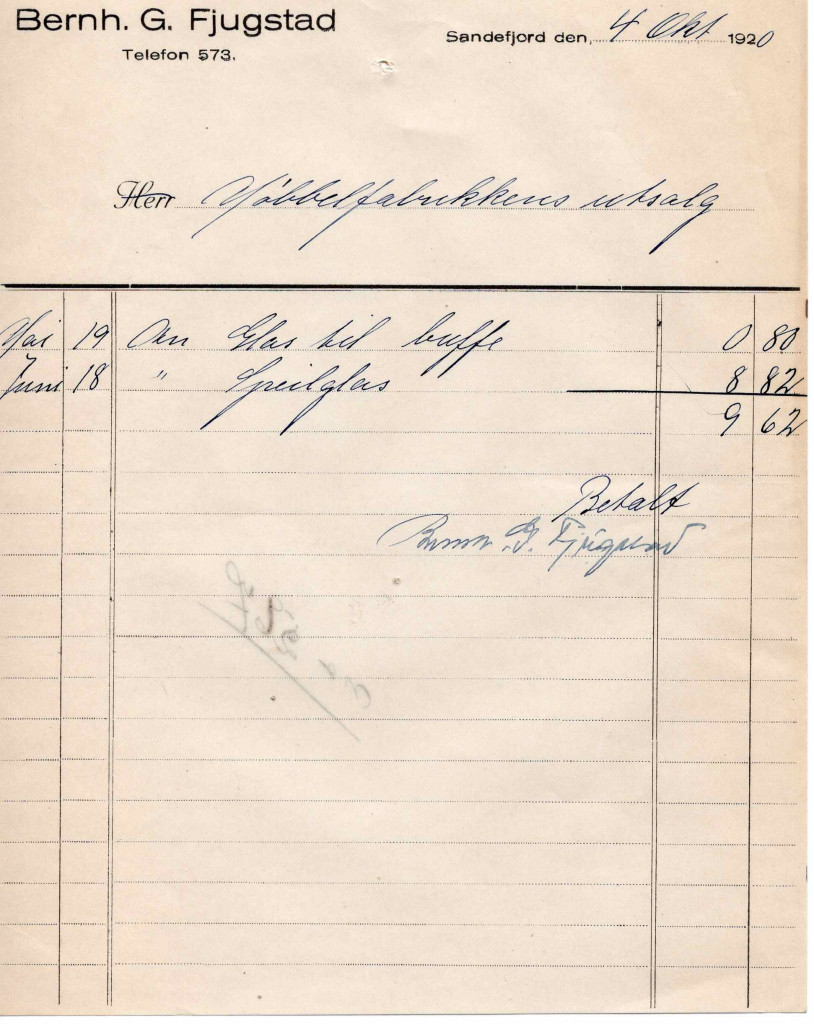 Bernh. G. Fjugstad
Telefon 573.
Sandefjord den, 4 Okt 1920
Herr Möbbelfabrikkens utsalg
Mai 19 An Glas til buffe 0 80
Juni 18 " Speilglas 8 82
9 62
Betalt
Bernh. G. Fjugstad